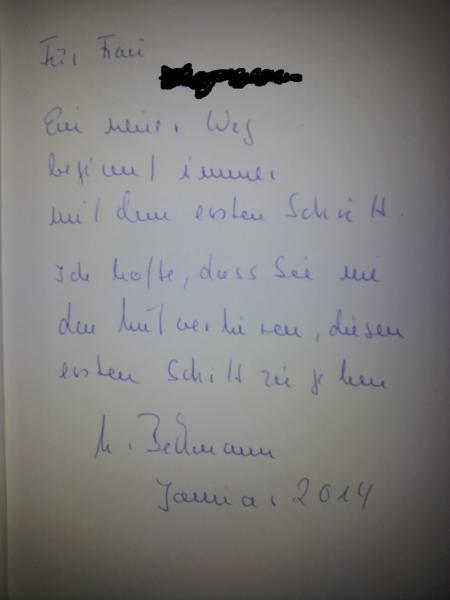 Für Frau
Ein neuer Weg
beginnt immer
mit dem ersten Schritt.
Ich hoffe, dass Sie nie
den Mut verlieren, diesen
ersten Schritt zu gehen
M. Beckmann
Januar 2014